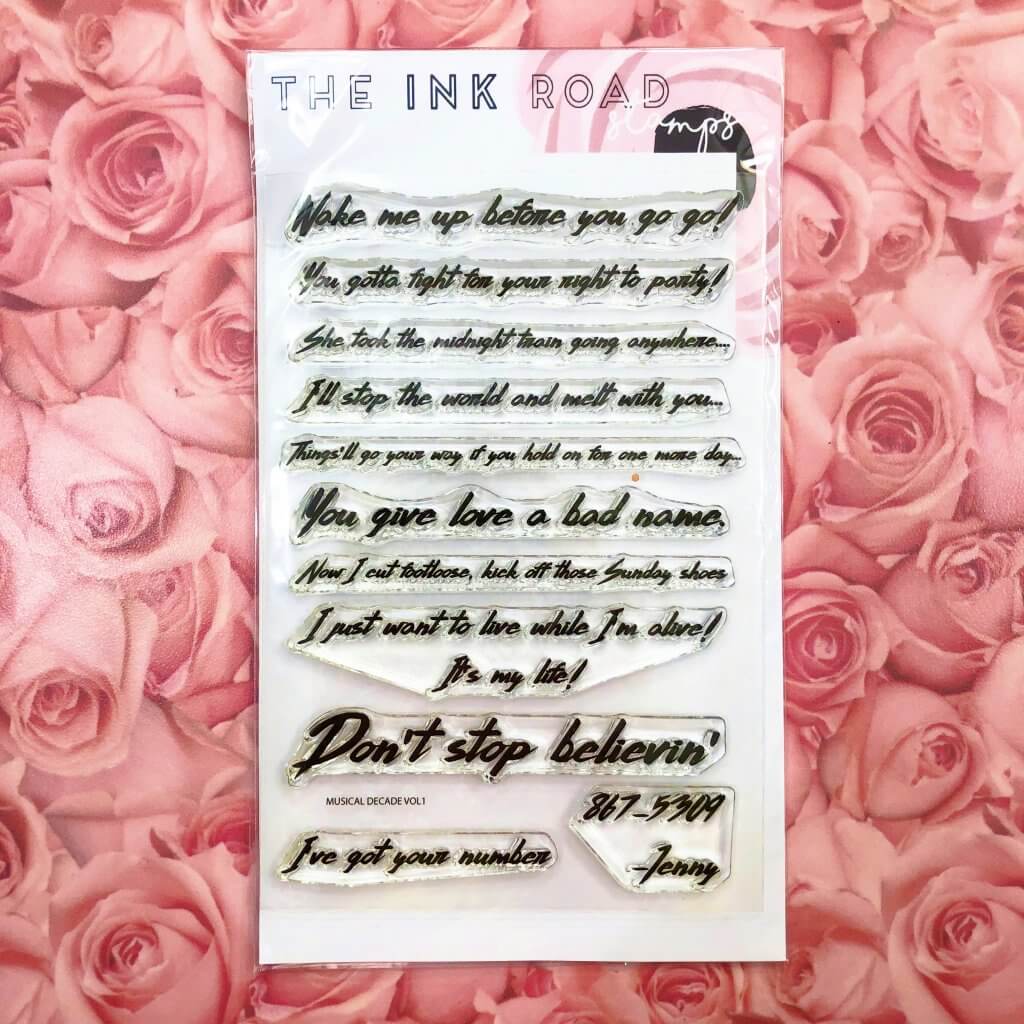 THE INK ROAD
stamps
Wake me up before you go go!
You gotta fight for your right to party!
She took the midnight train going anywhere....
I'll stop the world and melt with you...
Things'll go your way if you hold on for one more day...
You give love a bad name.
Now I cut footloose, kick off those Sunday shoes
I just want to live while I'm alive!
It's my life!
Don't stop believin'
MUSICAL DECADE VOL1
867-5309
I've got your number
-Jenny